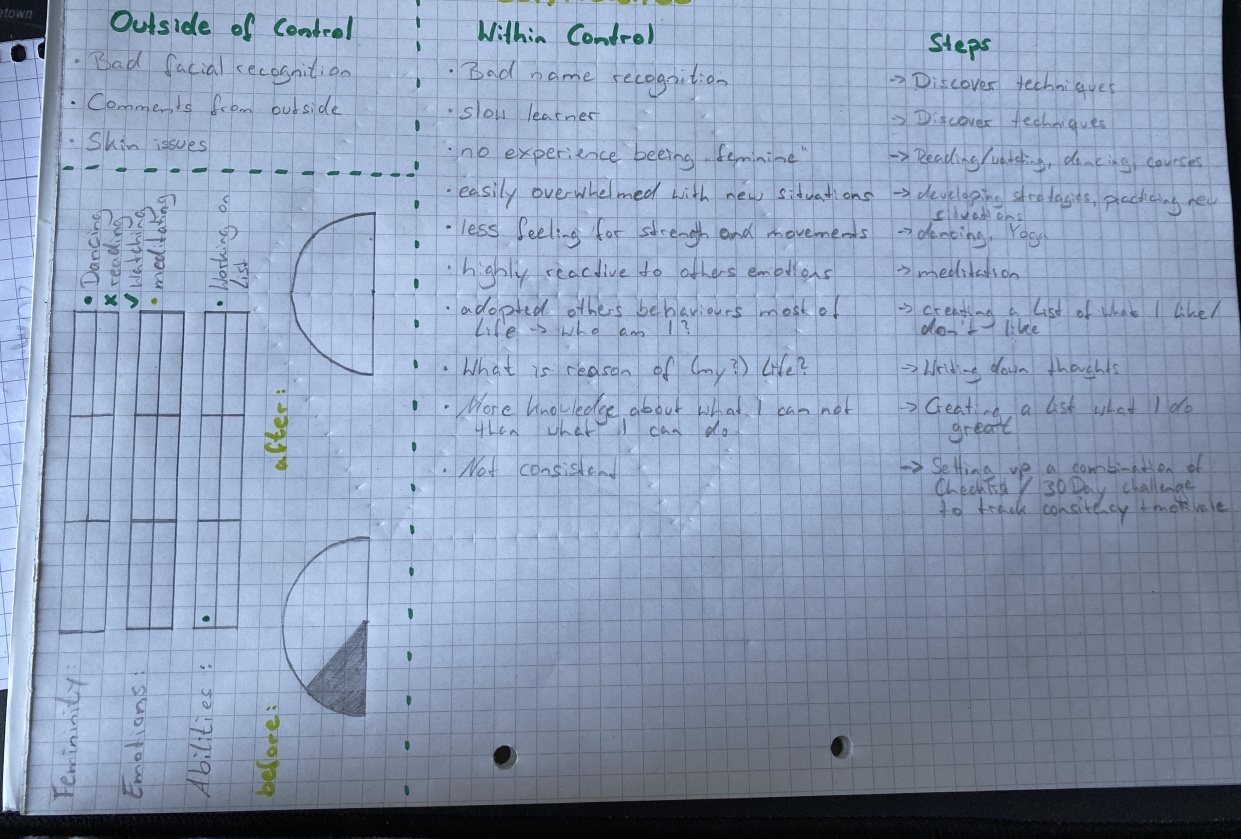 etown
Outside of Control
· Bad facial recognition
· Comments from outside
· Skin issues
Within Control
· Bad name recognition
· slow learner
· no experience beeing „feminine"
· easily overwhelmed with new situations
· less feeling for strength and movements
· highly reactive to others emotions
· adopted others behaviours most of
life → who am I?
· What is reason of (my?) Life?
· More knowledge about what I can not
then what I can do
· Not consistent
Steps
→ Discover techniques
→ Discover techniques
→ Reading/watching, dancing, courses
→ developing stradagies, practicing new
situations
→ dancing, Yoga
→ meditation
→ creating a list of what I like/
don't like
→ Writing down thoughts
→ Creating a list what I do
great
→ Setting up a combination of
Checklist / 30 Day challenge
to track consitency + motivate
Femininity:
• Dancing
x reading
✓ Watching
Emotions:
• meditating
Abilities:
• Working on
list
before:
after: